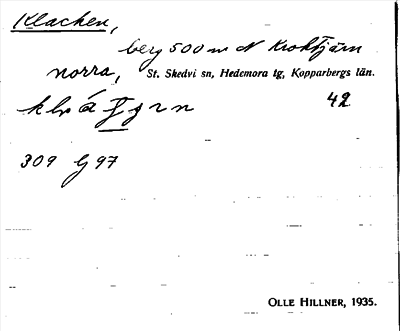 Klacken,
berg 500 m N Kroktjärn
norra, St. Skedvi sn, Hedemora tg, Kopparbergs län.
42
309 G 97
OLLE HILLNER, 1935.